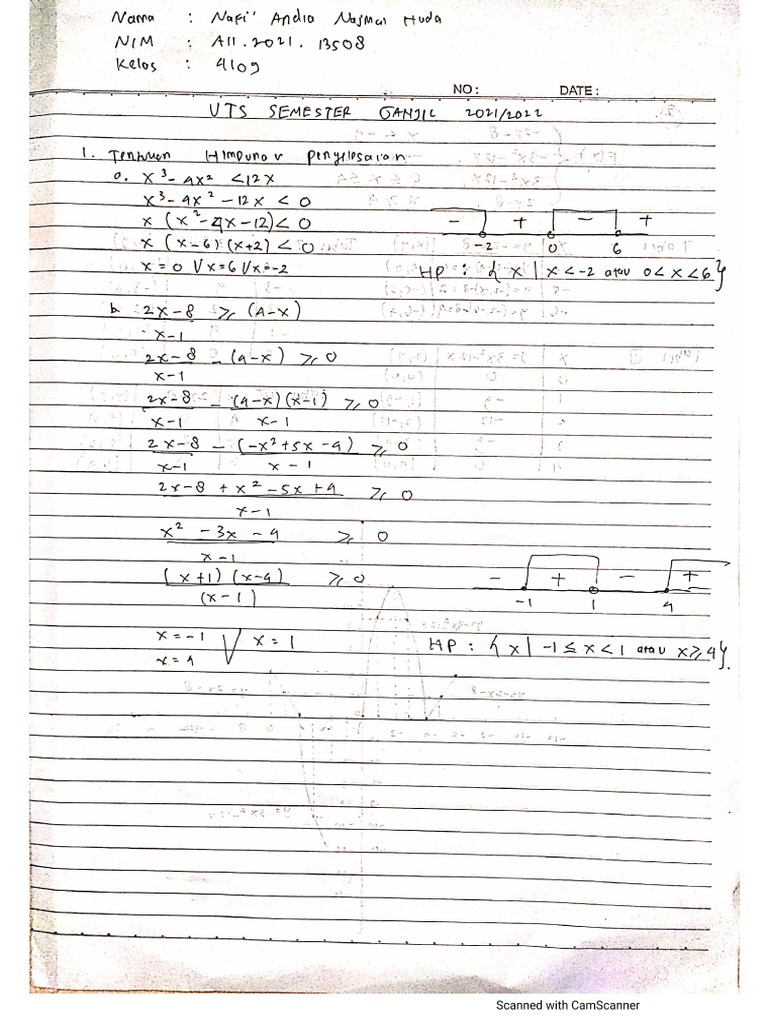 Nama : Nafi' Andia Nasmal Huda
NIM : A11.2021.13508
Kelas : 4109
NO: DATE:
UTS SEMESTER GANJIL 2021/2022
1. Tentukan Himpunan Penyelesaian
a. x³ - 4x² < 12x
x³ - 4x² - 12x < 0
x (x² - 4x - 12) < 0
x (x-6) (x+2) < 0
x = 0 V x = 6 V x = -2
- + - +
-2 0 6
HP : { x | x < -2 atau 0 < x < 6 }
b. 2x-8 / x-1 ≥ (4-x)
2x-8 / x-1 - (4-x) ≥ 0
2x-8 / x-1 - (4-x)(x-1) / x-1 ≥ 0
2x-8 / x-1 - (-x²+5x-4) / x-1 ≥ 0
2x-8 + x² - 5x + 4 / x-1 ≥ 0
x² - 3x - 4 / x-1 ≥ 0
(x+1) (x-4) / (x-1) ≥ 0
- + - +
-1 1 4
x = -1 V x = 1
x = 4
HP : { x | -1 ≤ x < 1 atau x ≥ 4 }.
Scanned with CamScanner